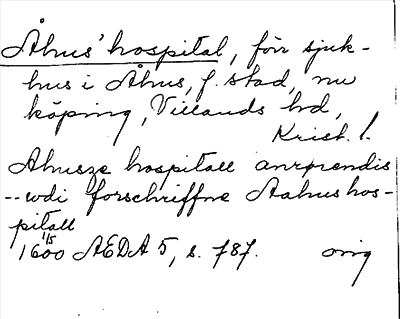 Åhus' hospital, förr sjuk-
hus i Åhus, f. stad, nu
köping, Villands hd,
Krist. l.
Ahusze hospitall anrørendis
-- udi forschriffne Aahus hos-
pitall
1600 1/5 AEDA 5, s. 787. orig